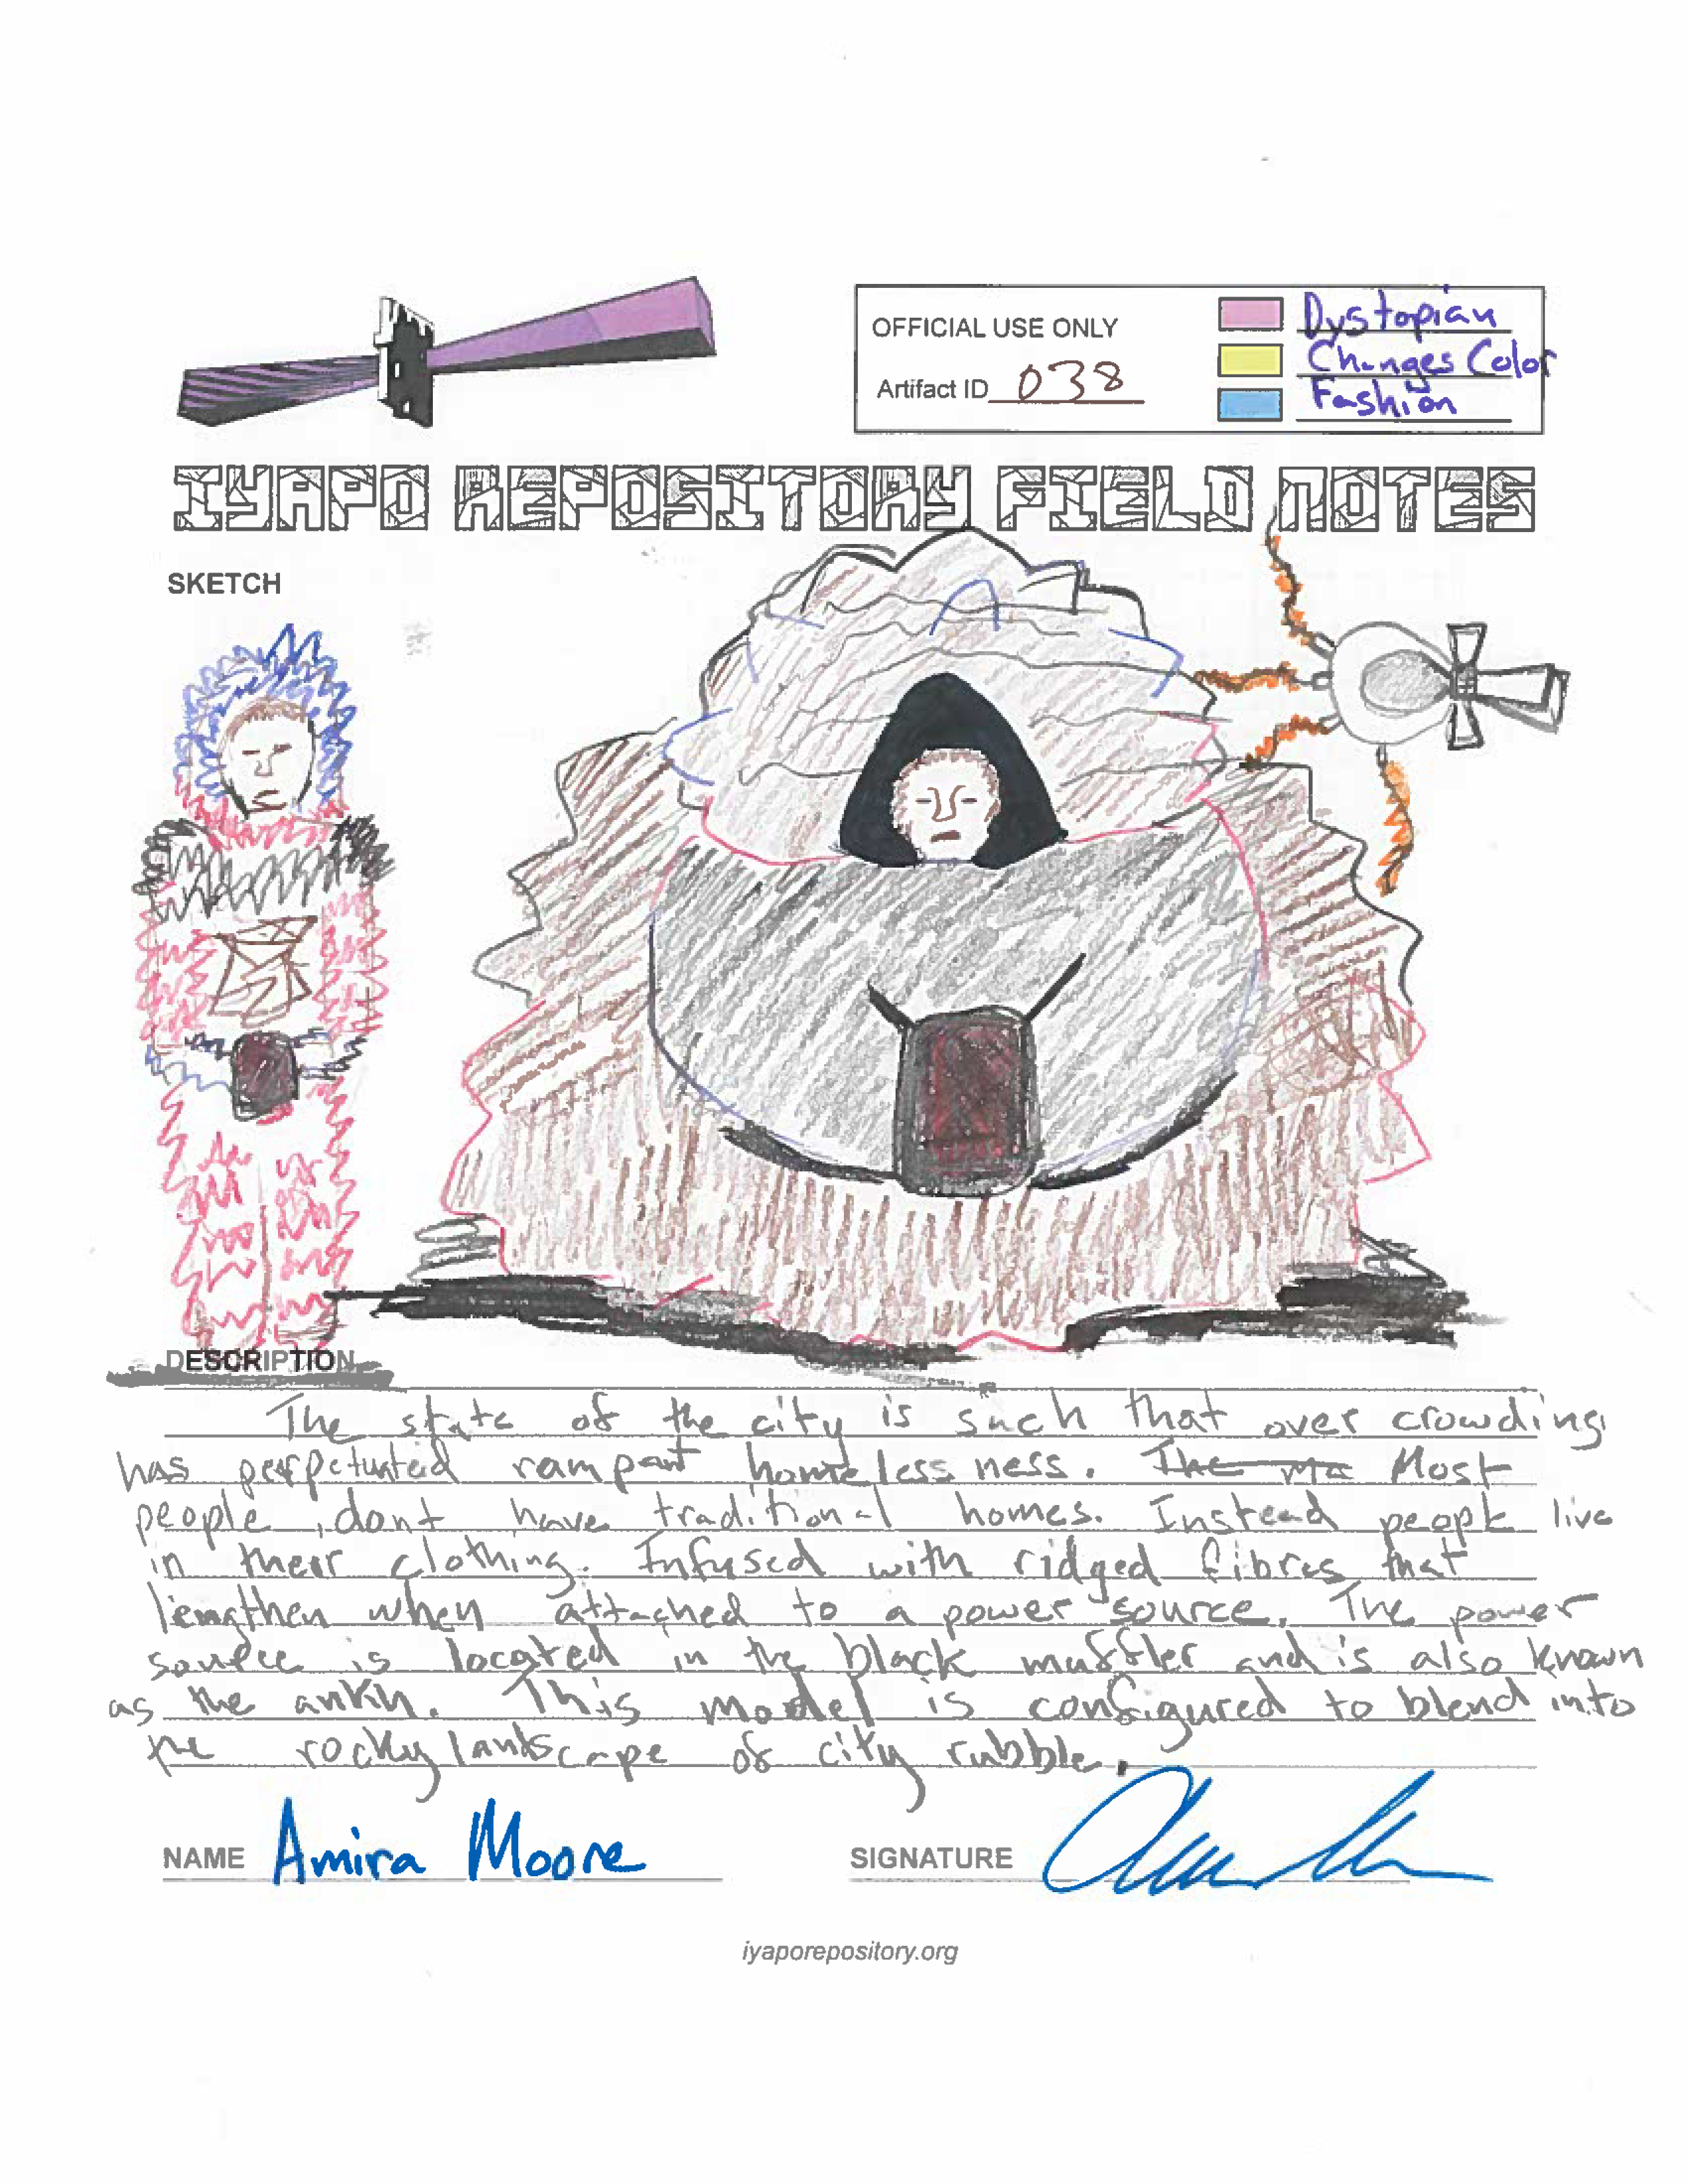 OFFICIAL USE ONLY
Artifact ID 038
Dystopian
Changes Color
Fashion
IYAPO REPOSITORY FIELD NOTES
SKETCH
DESCRIPTION
The state of the city is such that over crowding
has perpetuated rampant homelessness. The ma Most
people dont have traditional homes. Instead people live
in their clothing. Infused with ridged fibres that
lengthen when attached to a power source. The power
source is located in the black muffler and is also known
as the ankh. This model is configured to blend into
the rocky landscape of city rubble.
NAME Amira Moore
SIGNATURE
iyaporepository.org